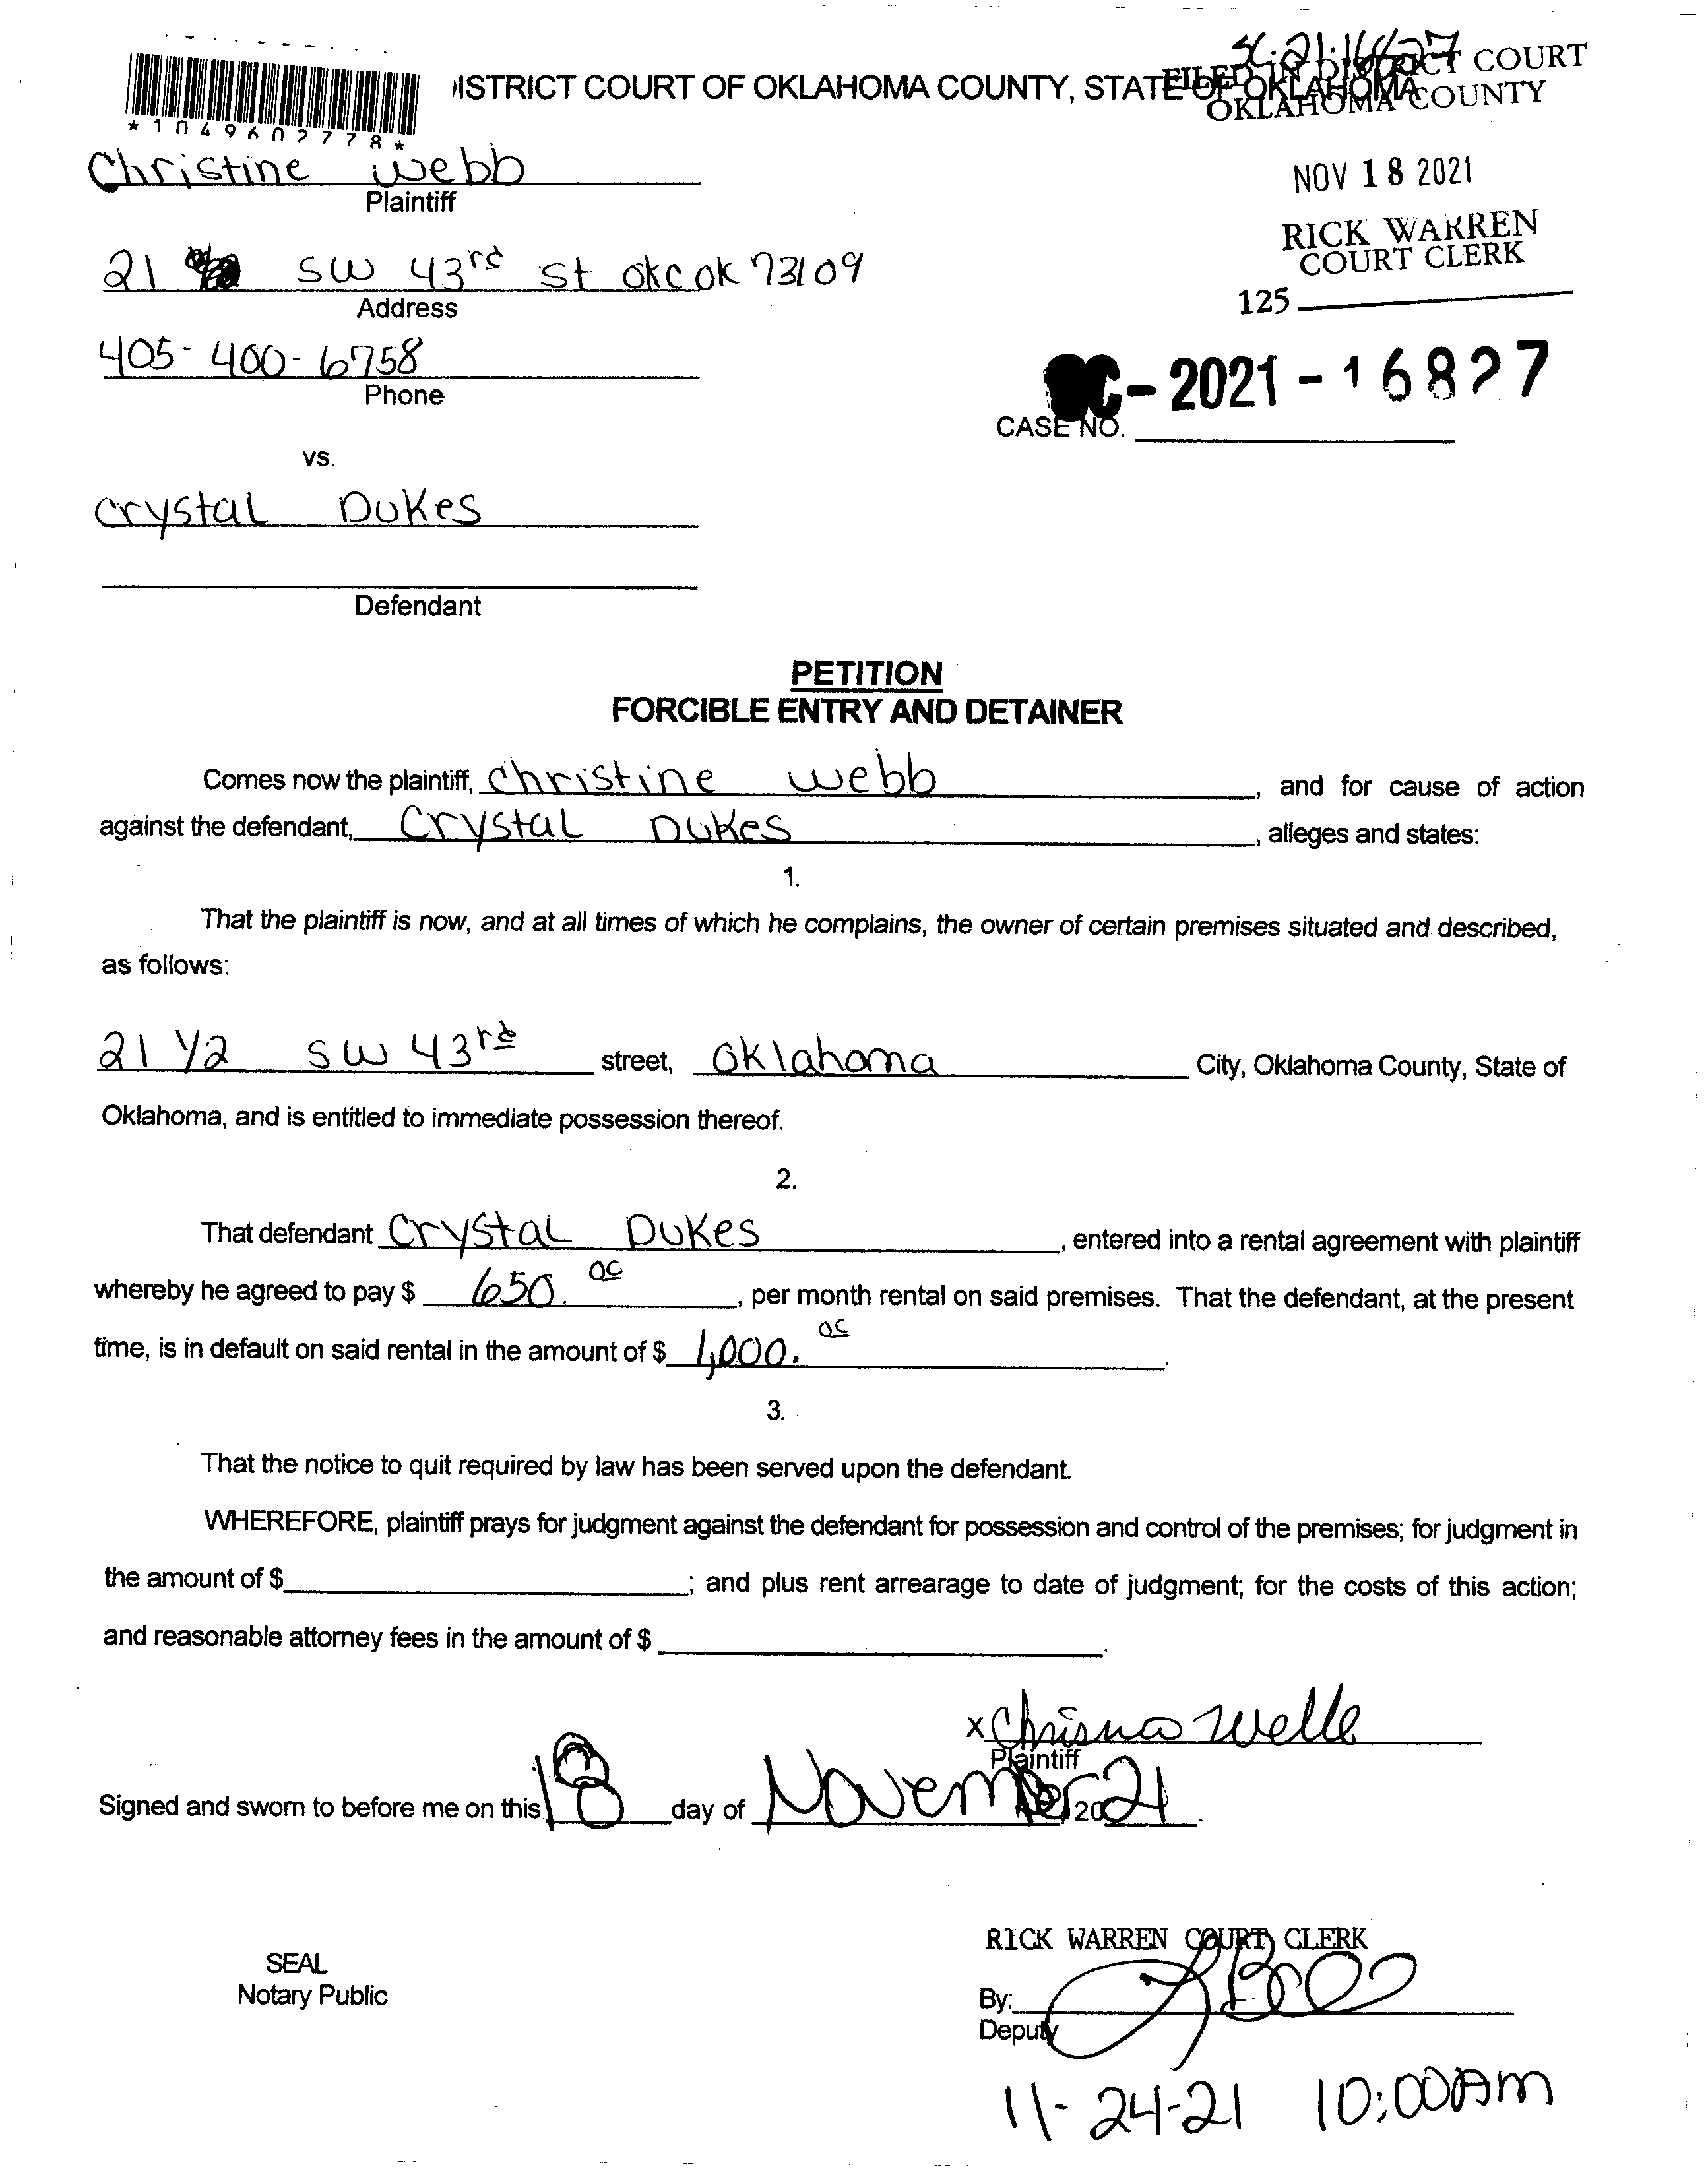 ISTRICT COURT OF OKLAHOMA COUNTY, STATE OF OKLAHOMA
FILED IN DISTRICT COURT
OKLAHOMA COUNTY
*1049602778*
NOV 18 2021
RICK WARREN
COURT CLERK
125
Christine Webb
Plaintiff
21 SW 43rd St OKC OK 73109
Address
405-400-6758
Phone
C-2021-16827
CASE NO.
vs.
Crystal Dukes
Defendant
PETITION
FORCIBLE ENTRY AND DETAINER
Comes now the plaintiff, Christine Webb, and for cause of action
against the defendant, Crystal Dukes, alleges and states:
1.
That the plaintiff is now, and at all times of which he complains, the owner of certain premises situated and described,
as follows:
21 1/2 SW 43rd street, Oklahoma City, Oklahoma County, State of
Oklahoma, and is entitled to immediate possession thereof.
2.
That defendant Crystal Dukes, entered into a rental agreement with plaintiff
whereby he agreed to pay $ 650.00, per month rental on said premises. That the defendant, at the present
time, is in default on said rental in the amount of $ 1,000.00.
3.
That the notice to quit required by law has been served upon the defendant.
WHEREFORE, plaintiff prays for judgment against the defendant for possession and control of the premises; for judgment in
the amount of $ ; and plus rent arrearage to date of judgment; for the costs of this action;
and reasonable attorney fees in the amount of $ .
x
Plaintiff
Signed and sworn to before me on this 18 day of November, 2021.
RICK WARREN COURT CLERK
SEAL
Notary Public
By:
Deputy
11-24-21 10:00AM